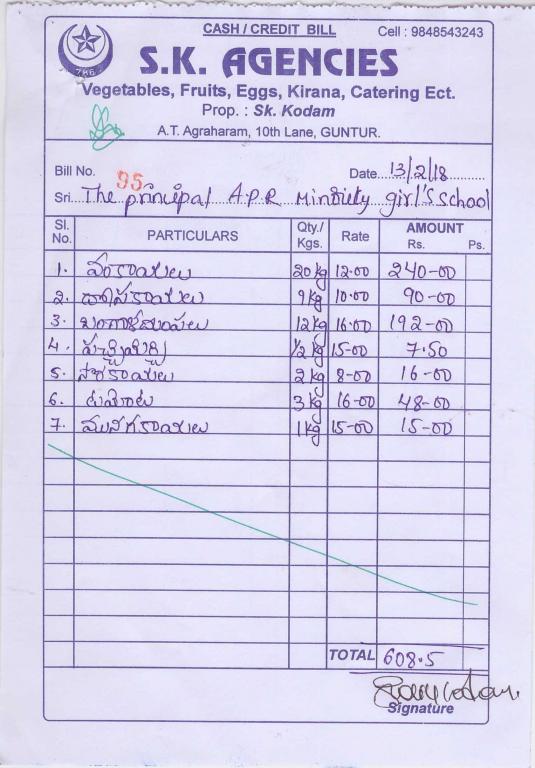 CASH / CREDIT BILL Cell : 9848543243
786
S.K. AGENCIES
Vegetables, Fruits, Eggs, Kirana, Catering Ect.
Prop. : Sk. Kodam
A.T. Agraharam, 10th Lane, GUNTUR.
Bill No. 95 Date 13/2/18
Sri The principal A.P.R minority girl's school
Sl. No. PARTICULARS Qty./ Kgs. Rate AMOUNT Rs. Ps.
1. వంకాయలు 20 kg 12-00 240-00
2. దోసకాయలు 9 kg 10-00 90-00
3. బంగాళదుంపలు 12 kg 16-00 192-00
4. పచ్చిమిర్చి 1/2 kg 15-00 7.50
5. సొరకాయలు 2 kg 8-00 16-00
6. టమోట 3 kg 16-00 48-00
7. మునగకాయలు 1 kg 15-00 15-00
TOTAL 608.5
Signature